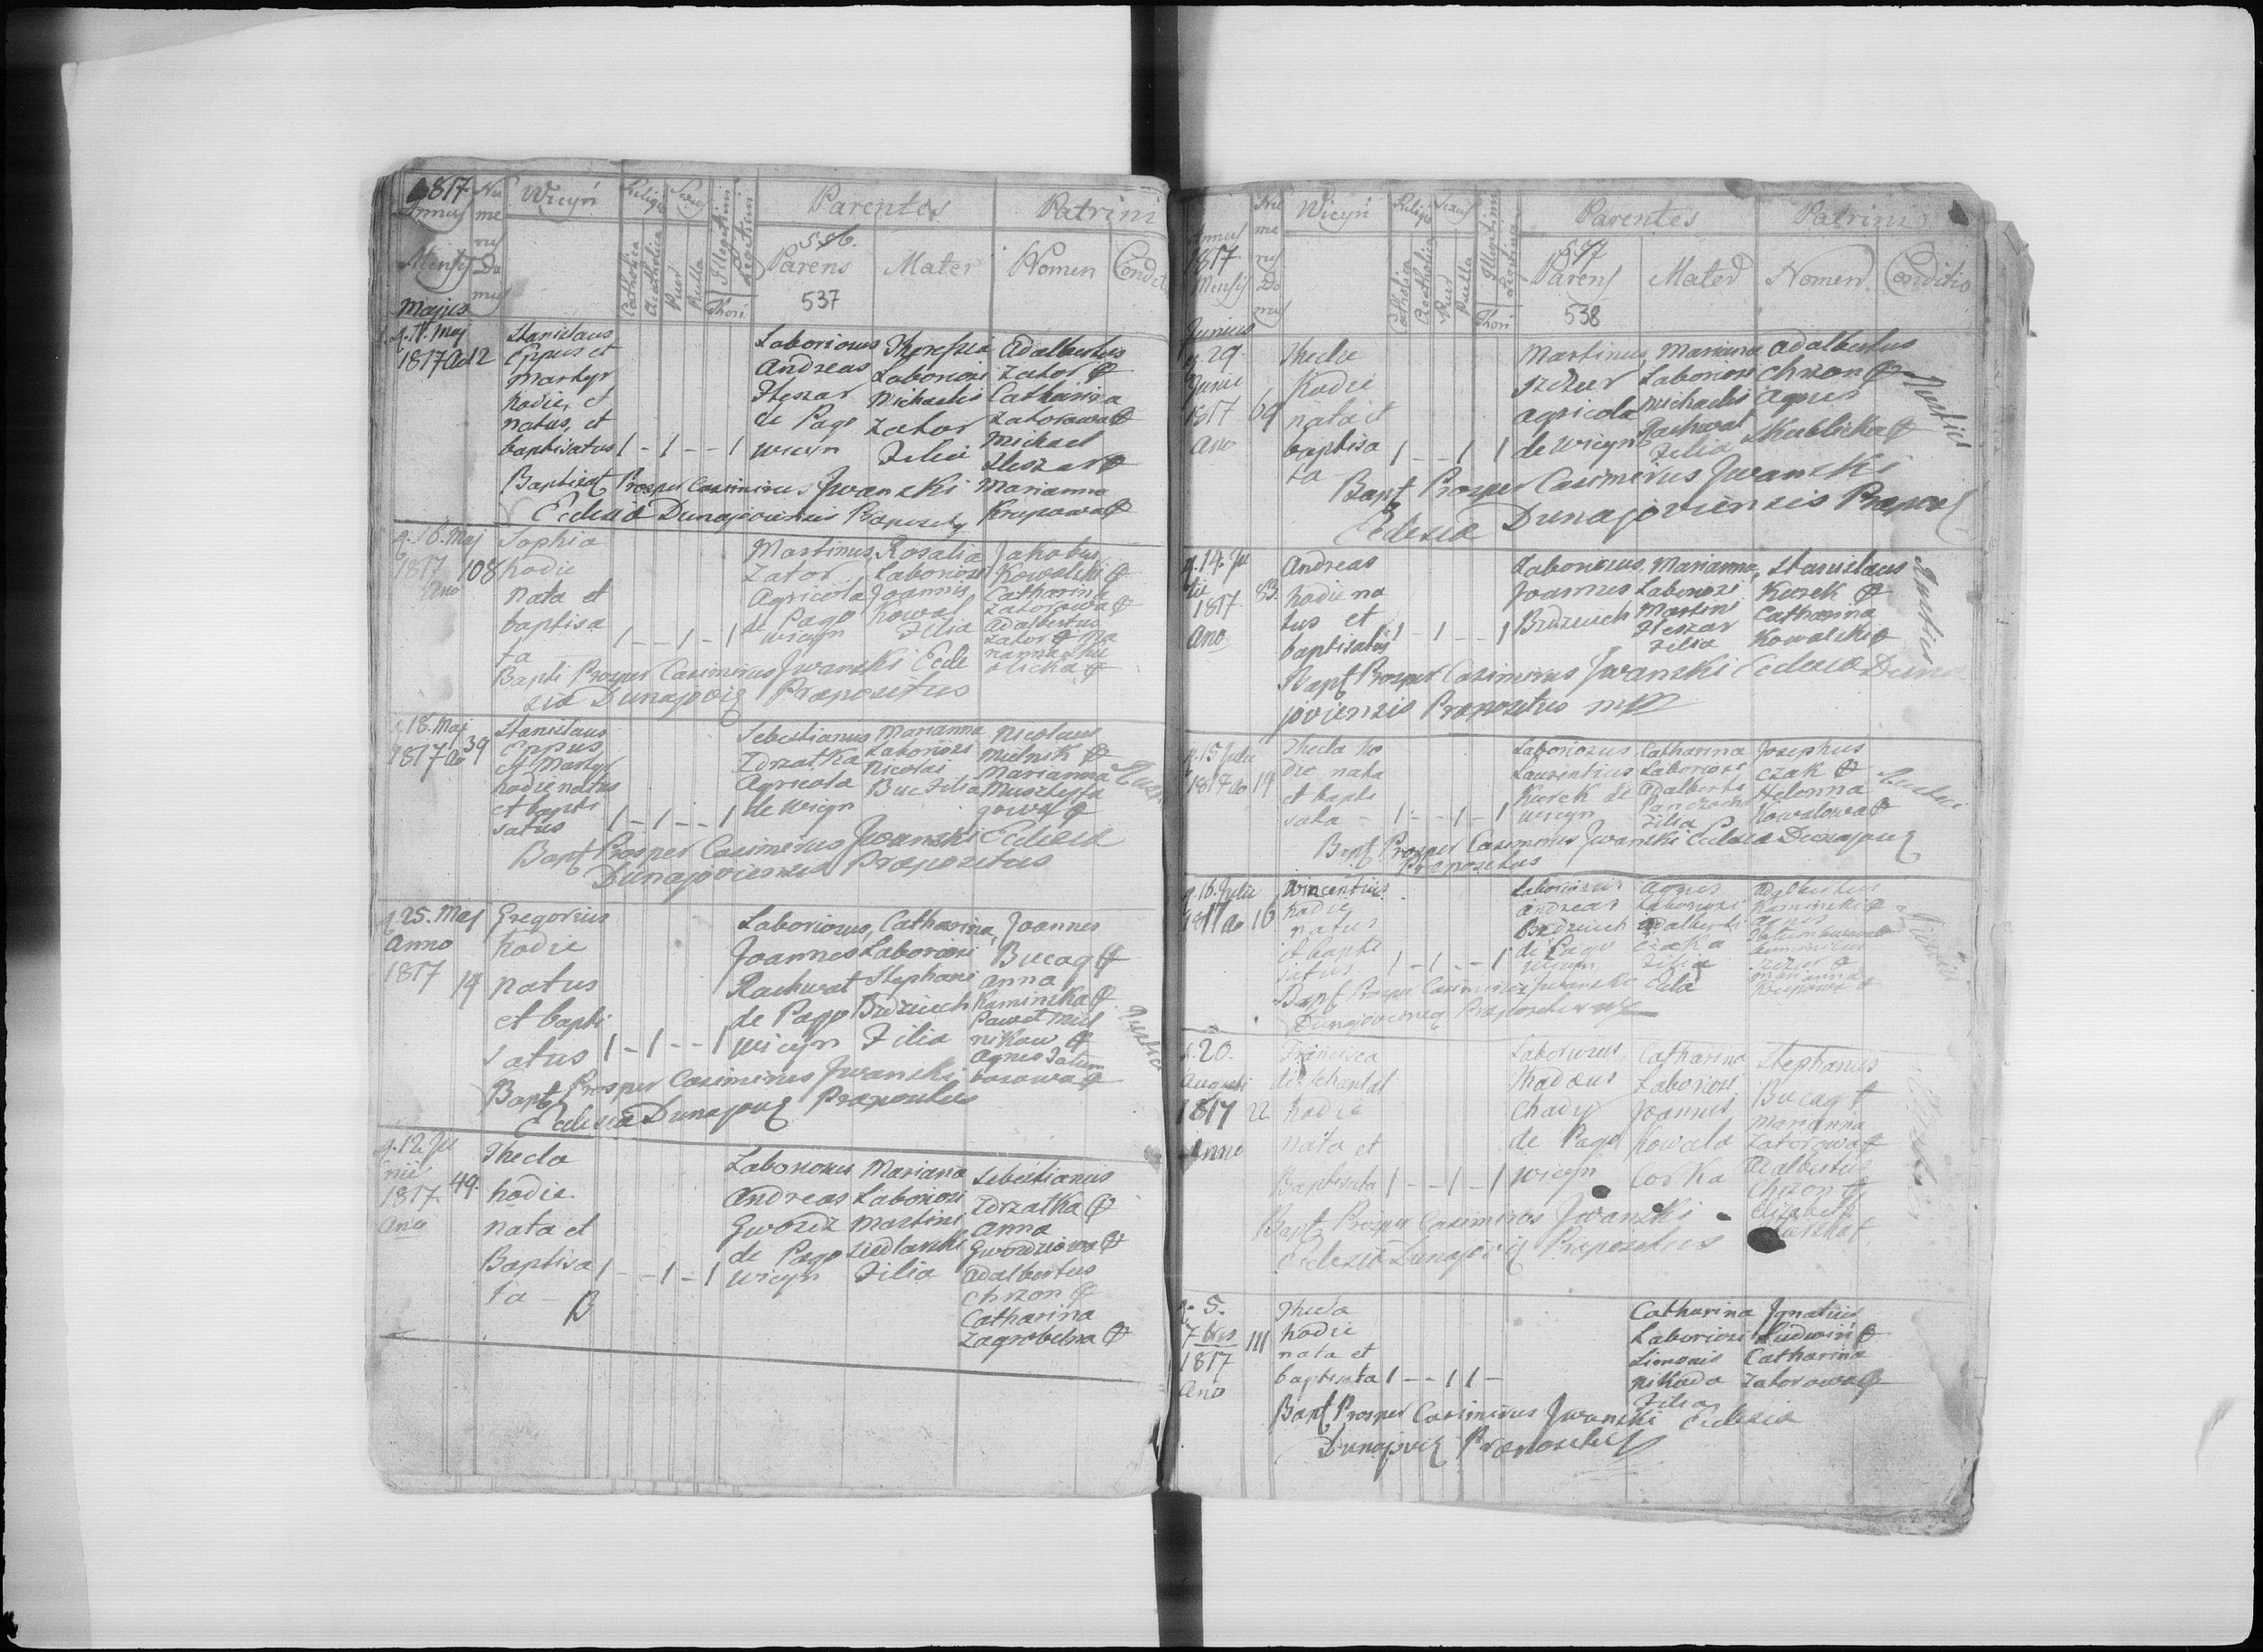 1817
Annus
Mensis
Majus
Nu
me
rus
Do
mus
Wicyń
Religio
Sexus
Catholica
Acatholica
Puer
Puella
Illegitimi
Legitimi
Thori
Parentes
Patrini
536.
Parens
Mater
Nomen
Conditi
537
Maj
1817 Ao 12
Stanislaus
Eppus et
Martyr
hodie
natus, et
baptisatus 1 - 1 - - 1
Laboriosus
Andreas
Heszar
de Pago
Wicyn
Laboriosi
Michaelis
Zator
Filia
Adalbertus
Zator
Catharina
Zatorowa
Michael
Heszar
Marianna
Krupowa
Baptisat Prosper Casimirus Jwanski
Eclesia Dunajoviensis Praeposity
16. Maj
1817
Ano
108
Sophia
hodie
nata et
baptisa
ta 1 - - 1 - 1
Martinus
Zator
Agricola
de Pago
Wicyn
Rosalia
Laboriosi
Joannis
Kowal
Filia
Jakobus
Kowalski
Catharina
Zatorowa
Adalbertus
Zator Ma
rianna Sku
blicka
Bapti Prosper Casimirus Jwanski Ecle
sia Dunajoviz Praepositus
18. Maj
1817 Ao 39
Stanislaus
Eppus
et Martyr
hodie natus
et bapti
satus 1 - 1 - - 1
Sebestianus
Zdrzatka
Agricola
de Wicyn
Marianna
Laboriosi
Nicolai
Buc Filia
Nicolaus
Mielnik
Marianna
Bapt Prosper Casimirus Jwanski Eclesia
Dunajoviensis Praepositus
25. Maj
Anno
1817
19
Gregorius
hodie
natus
et bapti
satus 1 - 1 - - 1
Laboriosus,
Joannes
Rachwat
de Pago
Wicyn
Catharina,
Laboriosi
Stephani
Brdzuch
Filia
Joannes
Bucag
Anna
Kaminska
Pawel Miel
nikow
Agnes
Bapt Prosper Casimirus Jwanski
Eclesia Dunajoviz Praepositus
12. Ju
nii
1817
Ano
49.
Thecla
hodie
nata et
Baptisa 1 - - 1 - 1
ta -
Laboriosus
Andreas
Gwozdz
de Pago
Wicyn
Mariana
Laboriosi
Martini
Siedlarski
Filia
Sebestianus
Zdrzatka
Anna
Gwozdziowa
Adalbertus
Chrzon
Catharina
Zagrobelna
Annus
1817
Mensis
Junius
Nu
me
rus
Do
mus
Wicyń
Religio
Sexus
Catholica
Acatholica
Puer
Puella
Illegitimi
Legitimi
Thori
Parentes
Patrini
537
Parens
Mater
Nomen
Conditio
538
29
Junii
1817
Ano
69
Thecla
Hodie
nata et
baptisa 1 - - 1 1
ta
Martinus,
Szczur
Agricola
de Wicyn
Mariana
Laboriosi
Michaelis
Rachwat
Filia
Adalbertus
Chrzon
Agnes
Skublicka
Rustici
Bapt Prosper Casimirus Jwanski
Eclesia Dunajoviensis Praepos
14. Ju
lii
1817
Ano
83.
Andreas
hodie na
tus et
baptisatus 1 - 1 - - 1
Laboriosus
Joannes
Brdzuch
Marianna,
Laboriosi
Martini
Heszar
Filia
Stanislaus
Kurek
Catharina
Kowalski
Rustici
Bapt Prosper Casimirus Jwanski Eclesia Duna
joviensis Praepositus mp
15 Julii
1817 Ao 14
Thecla ho
die nata
et bapti
sata - 1 - - 1 - 1
Laboriosus
Laurentius
Kurek de
Wicyn
Catharina
Laboriosi
Adalberti
Filia
Josephus
Czak
Helonna
Kowalowa
Rustici
Bapt Prosper Casimirus Jwanski Eclesia Dunajoviz
Praepositus
16. Julii
1817 Ao 16
Wincentius
hodie
natus
et bapti
satus 1 - 1 - - 1
Laboriosus
Andreas
Brdzuch
de Pago
Wicyn
Agnes
Laboriosi
Adalberti
Czaka
Filia
Adalbertus
Kaminski
Agnes
Szczur
Marianna
Krupowa
Bapt Prosper Casimirus Jwanski Ecla
Praepositus
20.
Augusti
1817
Anno
22
Francisca
de Schantal
hodie
nata et
Baptisata 1 - - 1 - 1
Laboriosus
Thadeus
Chady
de Pago
Wicyn
Catharina
Laboriosi
Joannis
Kowala
Corka
Stephanus
Bucag
Marianna
Zatorowa
Adalbertus
Chrzon
Elizabeth
Bapt Prosper Casimirus Jwanski
Eclesia Dunajoviz Praepositus
5.
7bris
1817
Ano
111
Thecla
hodie
nata et
baptisata 1 - - 1 1 -
Catharina
Laboriosi
Simonis
Nikoda
Filia
Ignatius
Ludwin
Catharina
Zatorowa
Bapt Prosper Casimirus Jwanski Eclesia
Dunajoviz Praepositus